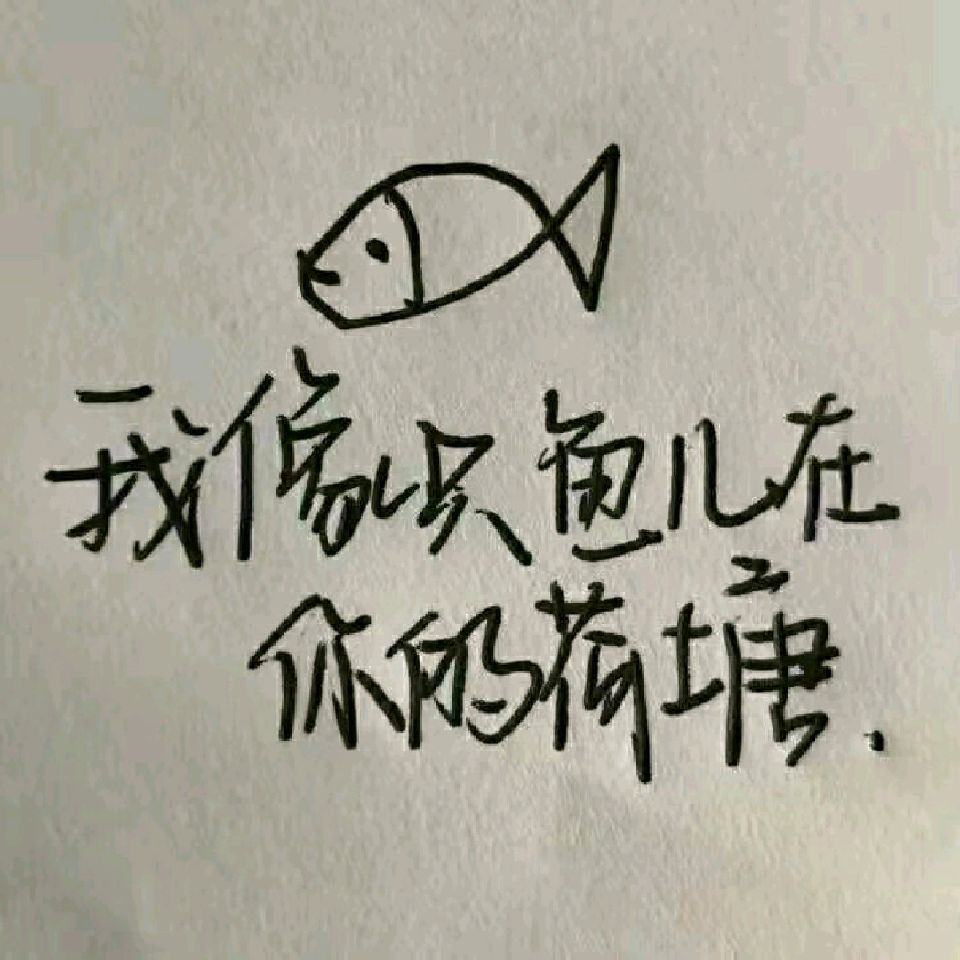 我像只鱼儿在
你的荷塘.